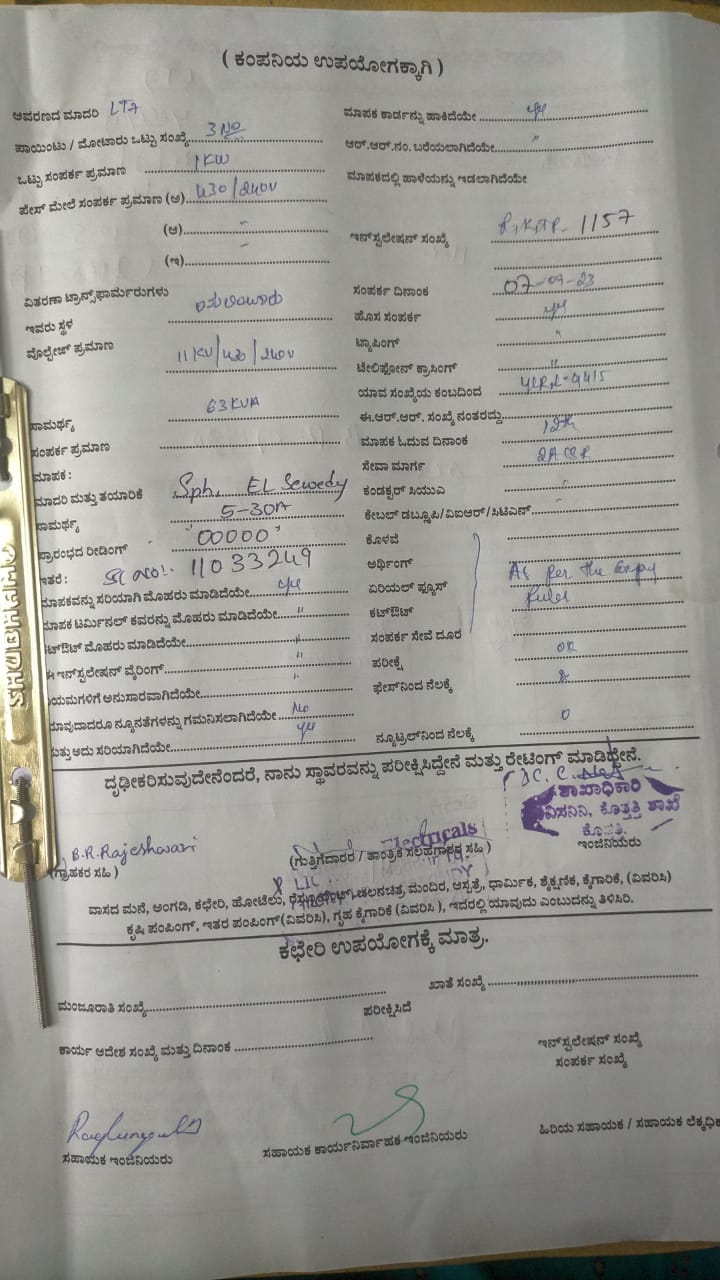 ( ಕಂಪನಿಯ ಉಪಯೋಗಕ್ಕಾಗಿ )
ಆವರಣದ ಮಾದರಿ LT7
ಪಾಯಿಂಟು / ಮೋಟಾರು ಒಟ್ಟು ಸಂಖ್ಯೆ 3 No
ಒಟ್ಟು ಸಂಪರ್ಕ ಪ್ರಮಾಣ 1KW
ಫೇಸ್ ಮೇಲೆ ಸಂಪರ್ಕ ಪ್ರಮಾಣ (ಅ) 430/240V
(ಆ) -
(ಇ) -
ವಿತರಣಾ ಟ್ರಾನ್ಸ್‌ಫಾರ್ಮರುಗಳು
ಇವರು ಸ್ಥಳ
ವೋಲ್ಟೇಜ್ ಪ್ರಮಾಣ 11KV/430/240V
ಸಾಮರ್ಥ್ಯ 63KVA
ಸಂಪರ್ಕ ಪ್ರಮಾಣ
ಮಾಪಕ :
ಮಾದರಿ ಮತ್ತು ತಯಾರಿಕೆ Sph. EL Sewedy
ಸಾಮರ್ಥ್ಯ 5-30A
ಪ್ರಾರಂಭದ ರೀಡಿಂಗ್ "00000"
ಇತರೆ : Sl No:- 11033249
ಮಾಪಕವನ್ನು ಸರಿಯಾಗಿ ಮೊಹರು ಮಾಡಿದೆಯೇ yes
ಮಾಪಕ ಟರ್ಮಿನಲ್ ಕವರನ್ನು ಮೊಹರು ಮಾಡಿದೆಯೇ "
ಕಟ್‌ಔಟ್ ಮೊಹರು ಮಾಡಿದೆಯೇ "
ಈ ಇನ್‌ಸ್ಟಲೇಷನ್ ವೈರಿಂಗ್ "
ನಿಯಮಗಳಿಗೆ ಅನುಸಾರವಾಗಿದೆಯೇ "
ಯಾವುದಾದರೂ ನ್ಯೂನತೆಗಳನ್ನು ಗಮನಿಸಲಾಗಿದೆಯೇ No
ಮತ್ತು ಅದು ಸರಿಯಾಗಿದೆಯೇ yes
ಮಾಪಕ ಕಾರ್ಡನ್ನು ಹಾಕಿದೆಯೇ yes
ಆರ್.ಆರ್.ನಂ. ಬರೆಯಲಾಗಿದೆಯೇ "
ಮಾಪಕದಲ್ಲಿ ಹಾಳೆಯನ್ನು ಇಡಲಾಗಿದೆಯೇ
ಇನ್‌ಸ್ಟಲೇಷನ್ ಸಂಖ್ಯೆ 1157
ಸಂಪರ್ಕ ದಿನಾಂಕ 07-09-23
ಹೊಸ ಸಂಪರ್ಕ yes
ಟ್ಯಾಪಿಂಗ್ "
ಟೇಲಿಫೋನ್ ಕ್ರಾಸಿಂಗ್ "
ಯಾವ ಸಂಖ್ಯೆಯ ಕಂಬದಿಂದ
ಈ.ಆರ್.ಆರ್. ಸಂಖ್ಯೆ ನಂತರದ್ದು
ಮಾಪಕ ಓದುವ ದಿನಾಂಕ 12th
ಸೇವಾ ಮಾರ್ಗ 2ACSR
ಕಂಡಕ್ಟರ್ ಸಿಯುಎ "
ಕೇಬಲ್ ಡಬ್ಲ್ಯೂಪಿ/ವಿಐಆರ್/ಸಿಟಿಎಸ್
ಕೊಳವೆ
ಅರ್ಥಿಂಗ್ As per the
ಏರಿಯಲ್ ಫ್ಯೂಸ್ Rules
ಕಟ್‌ಔಟ್
ಸಂಪರ್ಕ ಸೇವೆ ದೂರ
ಪರೀಕ್ಷೆ OK
ಫೇಸ್‌ನಿಂದ ನೆಲಕ್ಕೆ
ನ್ಯೂಟ್ರಲ್‌ನಿಂದ ನೆಲಕ್ಕೆ 0
ದೃಢೀಕರಿಸುವುದೇನೆಂದರೆ, ನಾನು ಸ್ಥಾವರವನ್ನು ಪರೀಕ್ಷಿಸಿದ್ದೇನೆ ಮತ್ತು ರೇಟಿಂಗ್ ಮಾಡಿದ್ದೇನೆ.
ಶಾಖಾಧಿಕಾರಿ
ವಿಸನಿನಿ, ಕೊತ್ತತ್ತಿ ಶಾಖೆ
ಕೊತ್ತತ್ತಿ.
B.R.Rajeshwari
Electricals
(ಗ್ರಾಹಕರ ಸಹಿ )
(ಗುತ್ತಿಗೆದಾರರ / ತಾಂತ್ರಿಕ ಸಲಹಾಗಾರರ ಸಹಿ )
ಇಂಜಿನಿಯರು
ವಾಸದ ಮನೆ, ಅಂಗಡಿ, ಕಛೇರಿ, ಹೋಟೆಲು, ರೆಸ್ಟೋರೆಂಟ್, ಚಲನಚಿತ್ರ ಮಂದಿರ, ಆಸ್ಪತ್ರೆ, ಧಾರ್ಮಿಕ, ಶೈಕ್ಷಣಿಕ, ಕೈಗಾರಿಕೆ, (ವಿವರಿಸಿ)
ಕೃಷಿ ಪಂಪಿಂಗ್, ಇತರ ಪಂಪಿಂಗ್(ವಿವರಿಸಿ), ಗೃಹ ಕೈಗಾರಿಕೆ (ವಿವರಿಸಿ ), ಇದರಲ್ಲಿ ಯಾವುದು ಎಂಬುದನ್ನು ತಿಳಿಸಿರಿ.
ಕಛೇರಿ ಉಪಯೋಗಕ್ಕೆ ಮಾತ್ರ.
ಮಂಜೂರಾತಿ ಸಂಖ್ಯೆ
ಖಾತೆ ಸಂಖ್ಯೆ
ಪರೀಕ್ಷಿಸಿದೆ
ಕಾರ್ಯ ಆದೇಶ ಸಂಖ್ಯೆ ಮತ್ತು ದಿನಾಂಕ
ಇನ್‌ಸ್ಟಲೇಷನ್ ಸಂಖ್ಯೆ
ಸಂಪರ್ಕ ಸಂಖ್ಯೆ
ಸಹಾಯಕ ಇಂಜಿನಿಯರು
ಸಹಾಯಕ ಕಾರ್ಯನಿರ್ವಾಹಕ ಇಂಜಿನಿಯರು
ಹಿರಿಯ ಸಹಾಯಕ / ಸಹಾಯಕ ಲೆಕ್ಕಾಧಿಕ